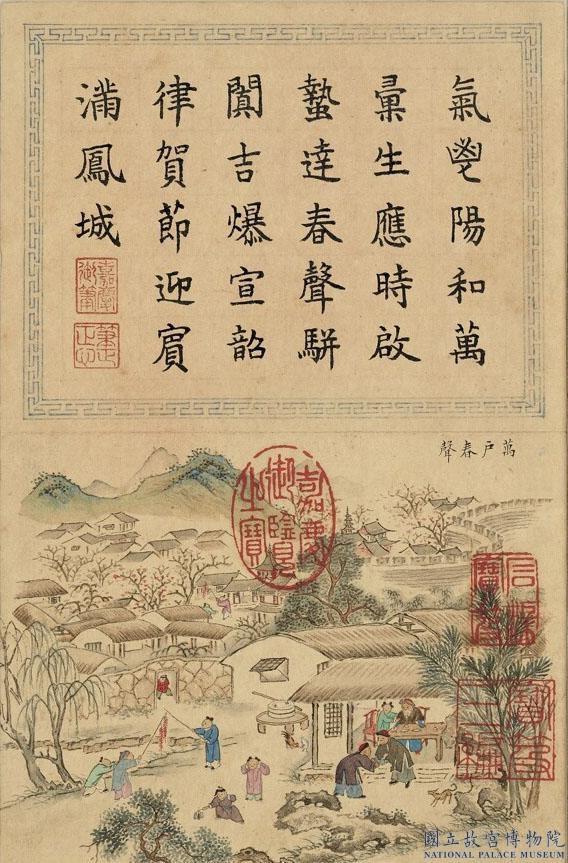 氣鬯陽和萬
彙生應時啟
蟄達春聲駢
闐吉爆宣韶
律賀節迎賓
滿鳳城
嘉慶御筆
萬戶春聲
嘉慶御覽之寶
石渠寶笈
國立故宮博物院
NATIONAL PALACE MUSEUM